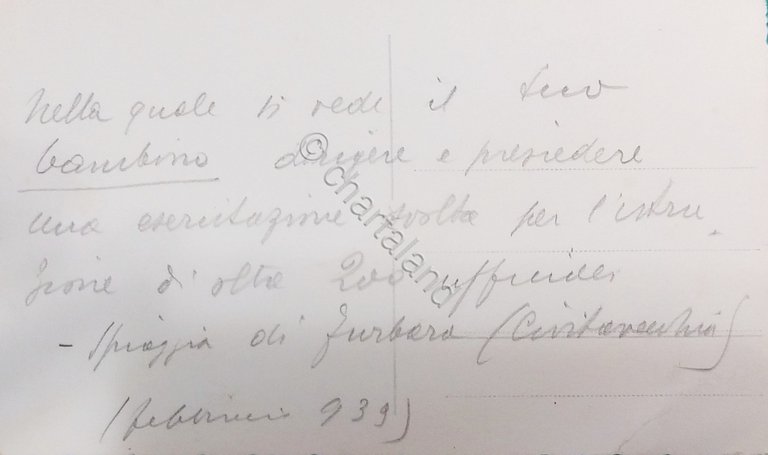 Nella quale si vede il tuo
bambino dirigere e presiedere
una esercitazione svolta per l'istru-
zione di oltre 200 ufficiali
- Spiaggia di Furbara (Civitavecchia)
(febbraio 939)
© chartaland